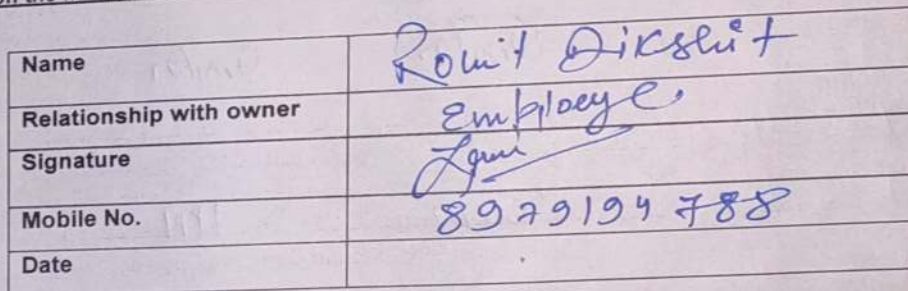 Name Romit Dikshit
Relationship with owner Emploeye
Signature
Mobile No. 8979194788
Date